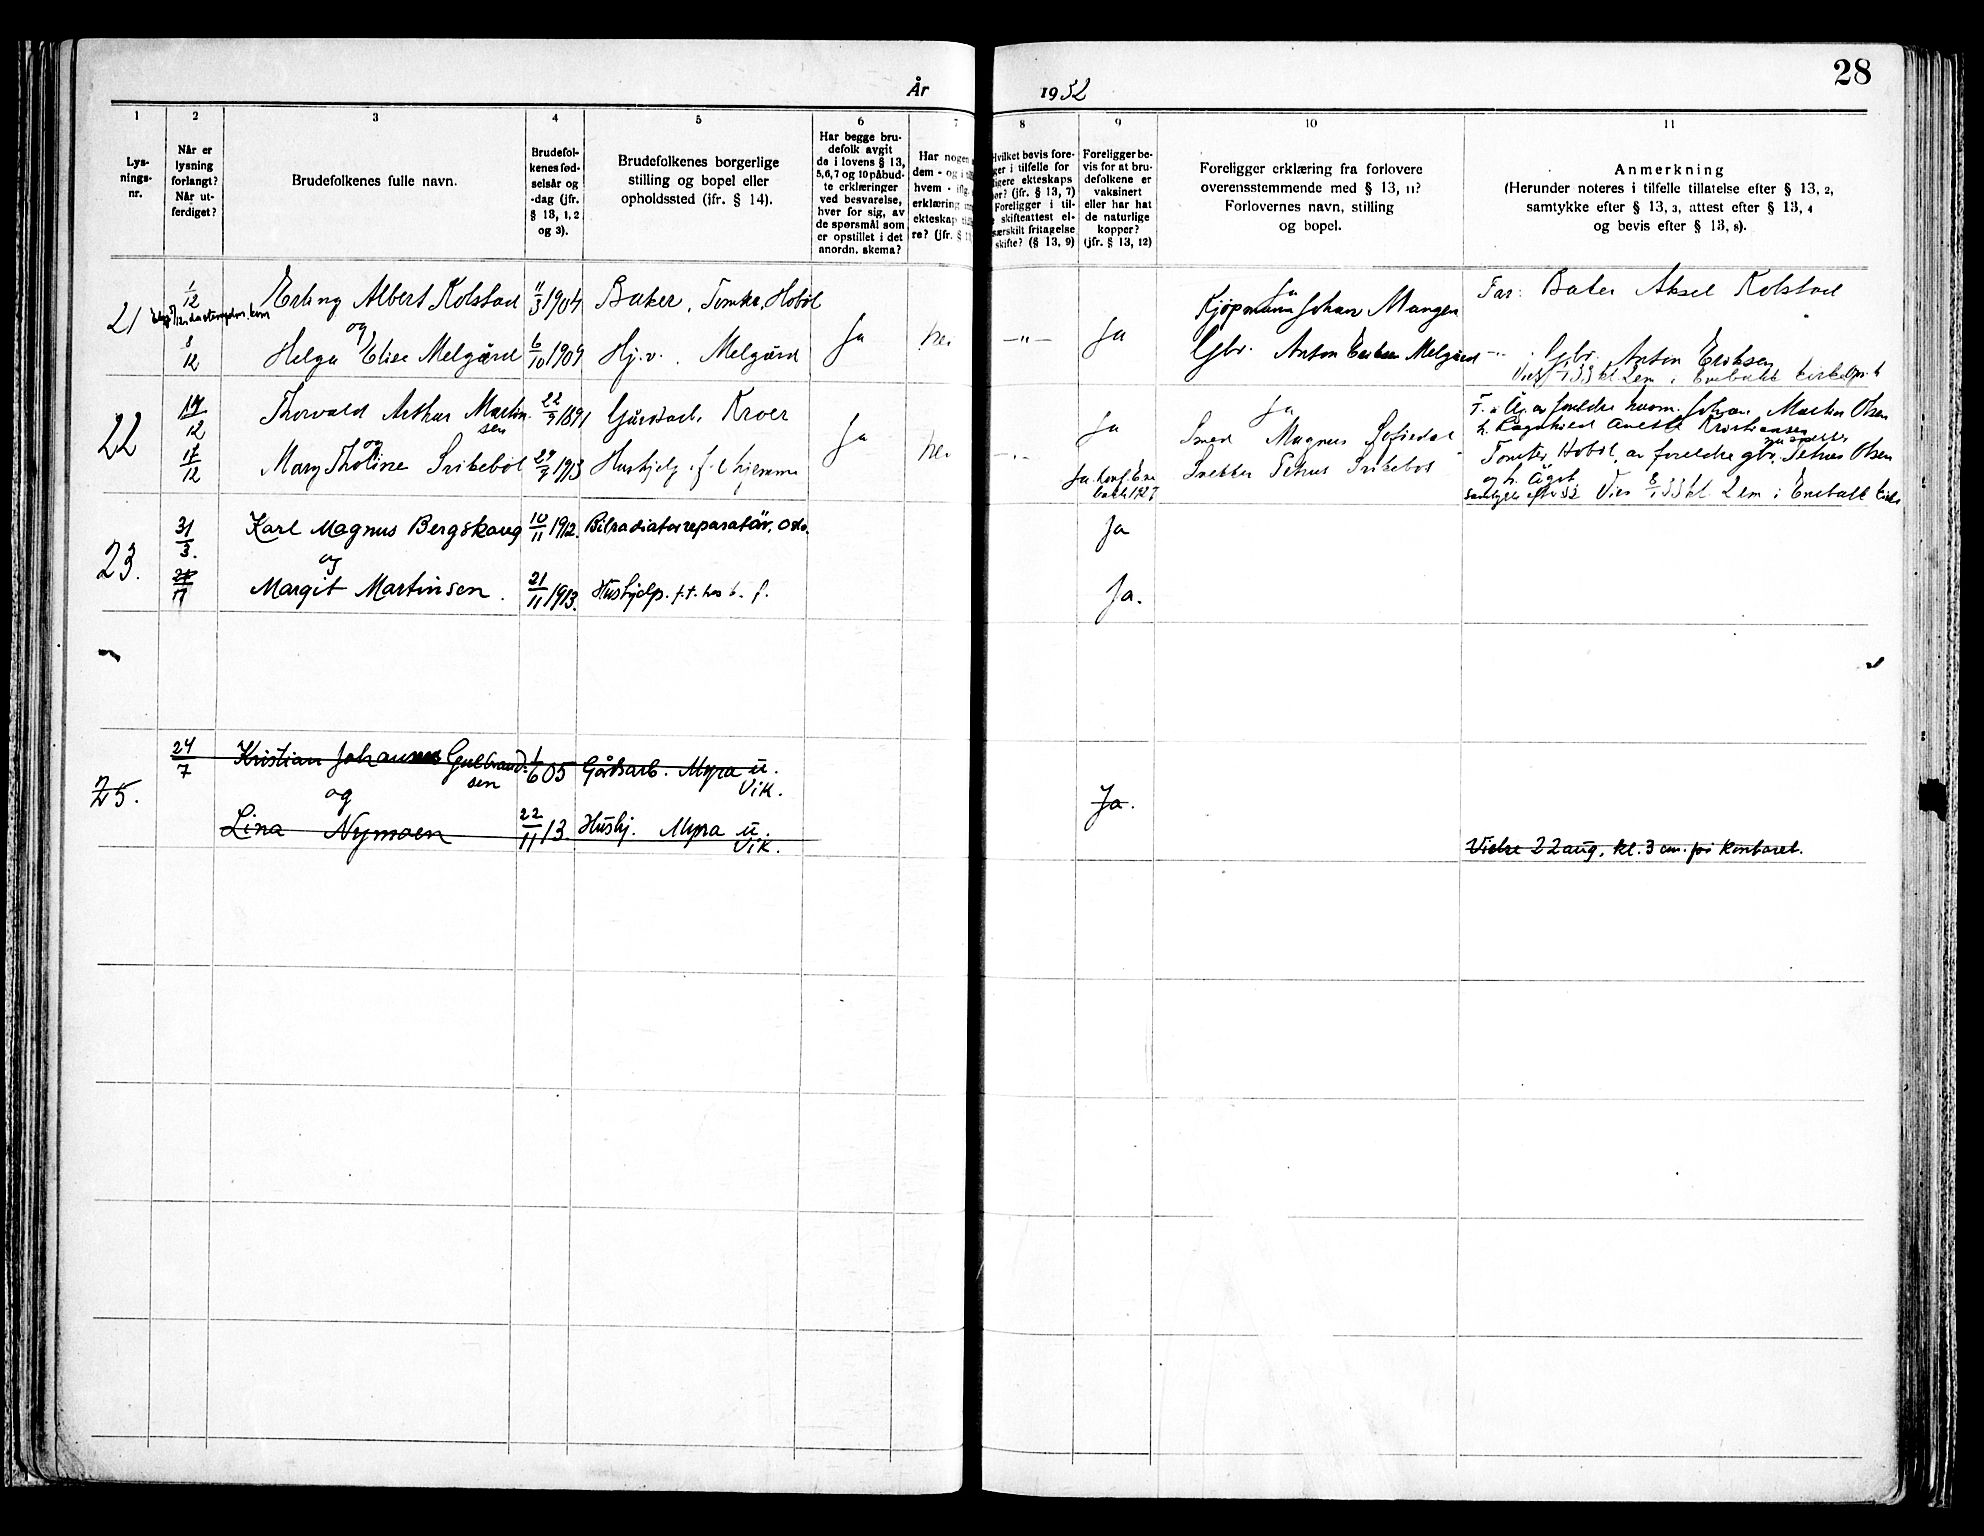 28
År 1932
1 2 3 4 5 6 7 8 9 10 11
Lys-
nings-
nr.
Når er
lysning
forlangt?
Når ut-
ferdiget?
Brudefolkenes fulle navn.
Brudefol-
kenes fød-
selsår og
-dag (jfr.
§ 13, 1, 2
og 3).
Brudefolkenes borgerlige
stilling og bopel eller
opholdssted (jfr. § 14).
Har begge bru-
defolk avgit
de i lovens § 13,
5,6,7 og 10 påbud-
te erklæringer
ved besvarelse,
hver for sig, av
de spørsmål som
er opstillet i det
anordn. skema?
Har nogen
dem - og i
hvem -
erklæring
ekteskap
re? (jfr. §
Hvilket bevis fore-
ger i tilfelle for
ligere ekteskaps
or? (jfr. § 13, 7)
Foreligger i til-
skifteattest el-
særskilt fritagelse
skifte? (§ 13, 9)
Foreligger be-
vis for at bru-
defolkene er
vaksinert
eller har hat
de naturlige
kopper?
(jfr. § 13, 12)
Foreligger erklæring fra forlovere
overensstemmende med § 13, 11?
Forlovernes navn, stilling
og bopel.
Anmerkning
(Herunder noteres i tilfelle tillatelse efter § 13, 2,
samtykke efter § 13, 3, attest efter § 13, 4
og bevis efter § 13, 8).
21 1/12 Erling Albert Kolstad 11/3 1904 Baker, Tomter, Hobøl
og
8/12 Helga Elise Melgård 6/10 1909 Hj.v. Melgård
Ja nei -"- Ja
Ja
Kjøpmann Johan Mangen
Gbr. Anton Melgård
Far: Baker Aksel Kolstad
-"- Gbr. Anton Eriksen
22 17/12 Thorvald Arthur Martin-
sen 22/9 1891 Gårdsarb. Kroer
og
17/12 Mary Tholine Svikebøl 29/9 1913 Hushjelp f.t. hjemme
Ja nei -"- Ja
Ja. konf. Ene-
bakk 1927
Ja
Smed Magnus
Snekker Petrus Svikebøl
Johan Martin Olsen
Kristiansen
Tomter, Hobøl, av foreldre gbr. Petrus Olsen
Vies 8/1 33 kl. 2 em i Enebakk kirke
23. 31/3. Karl Magnus Bergskaug 10/11 1912. Bilradiatorreparatør, Oslo. Ja
og
Margit Martinsen. 21/11 1913. Hushjelp. f.t. hos b. f. Ja.
25. 24/7 Kristian Johannes Gulbrand-
sen 1/6 05 Gårdsarb. Myra u.
Vik.
og
Lina Nymoen 22/11 13. Hushj. Myra u.
Vik.
Ja.
Vielse 22 aug. kl. 3 em. på kontoret.